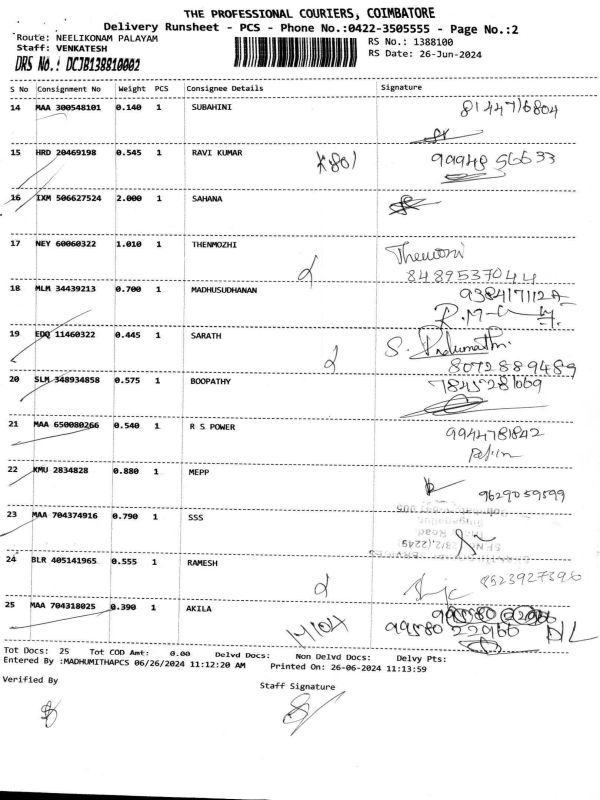 THE PROFESSIONAL COURIERS, COIMBATORE
Delivery Runsheet - PCS - Phone No.:0422-3505555 - Page No.:2
Route: NEELIKONAM PALAYAM
RS No.: 1388100
Staff: VENKATESH
RS Date: 26-Jun-2024
DRS No.: DCJB138810002
S No Consignment No Weight PCS Consignee Details Signature
14 MAA 300548101 0.140 1 SUBAHINI 8144716804
15 HRD 20469198 0.545 1 RAVI KUMAR K801 99948 56633
16 IXM 506627524 2.000 1 SAHANA
17 NEY 60060322 1.010 1 THENMOZHI
8489537044
18 MLM 34439213 0.700 1 MADHUSUDHANAN
19 EDQ 11460322 0.445 1 SARATH
8072889489
20 SLM 348934858 0.575 1 BOOPATHY
21 MAA 650080266 0.540 1 R S POWER 9944781842
22 KMU 2834828 0.880 1 MEPP 9629059599
23 MAA 704374916 0.790 1 SSS
24 BLR 405141965 0.555 1 RAMESH 8523927396
25 MAA 704318025 0.390 1 AKILA
99580 22966
Tot Docs: 25 Tot COD Amt: 0.00 Delvd Docs: Non Delvd Docs: Delvy Pts:
Entered By :MADHUMITHAPCS 06/26/2024 11:12:20 AM Printed On: 26-06-2024 11:13:59
Verified By
Staff Signature